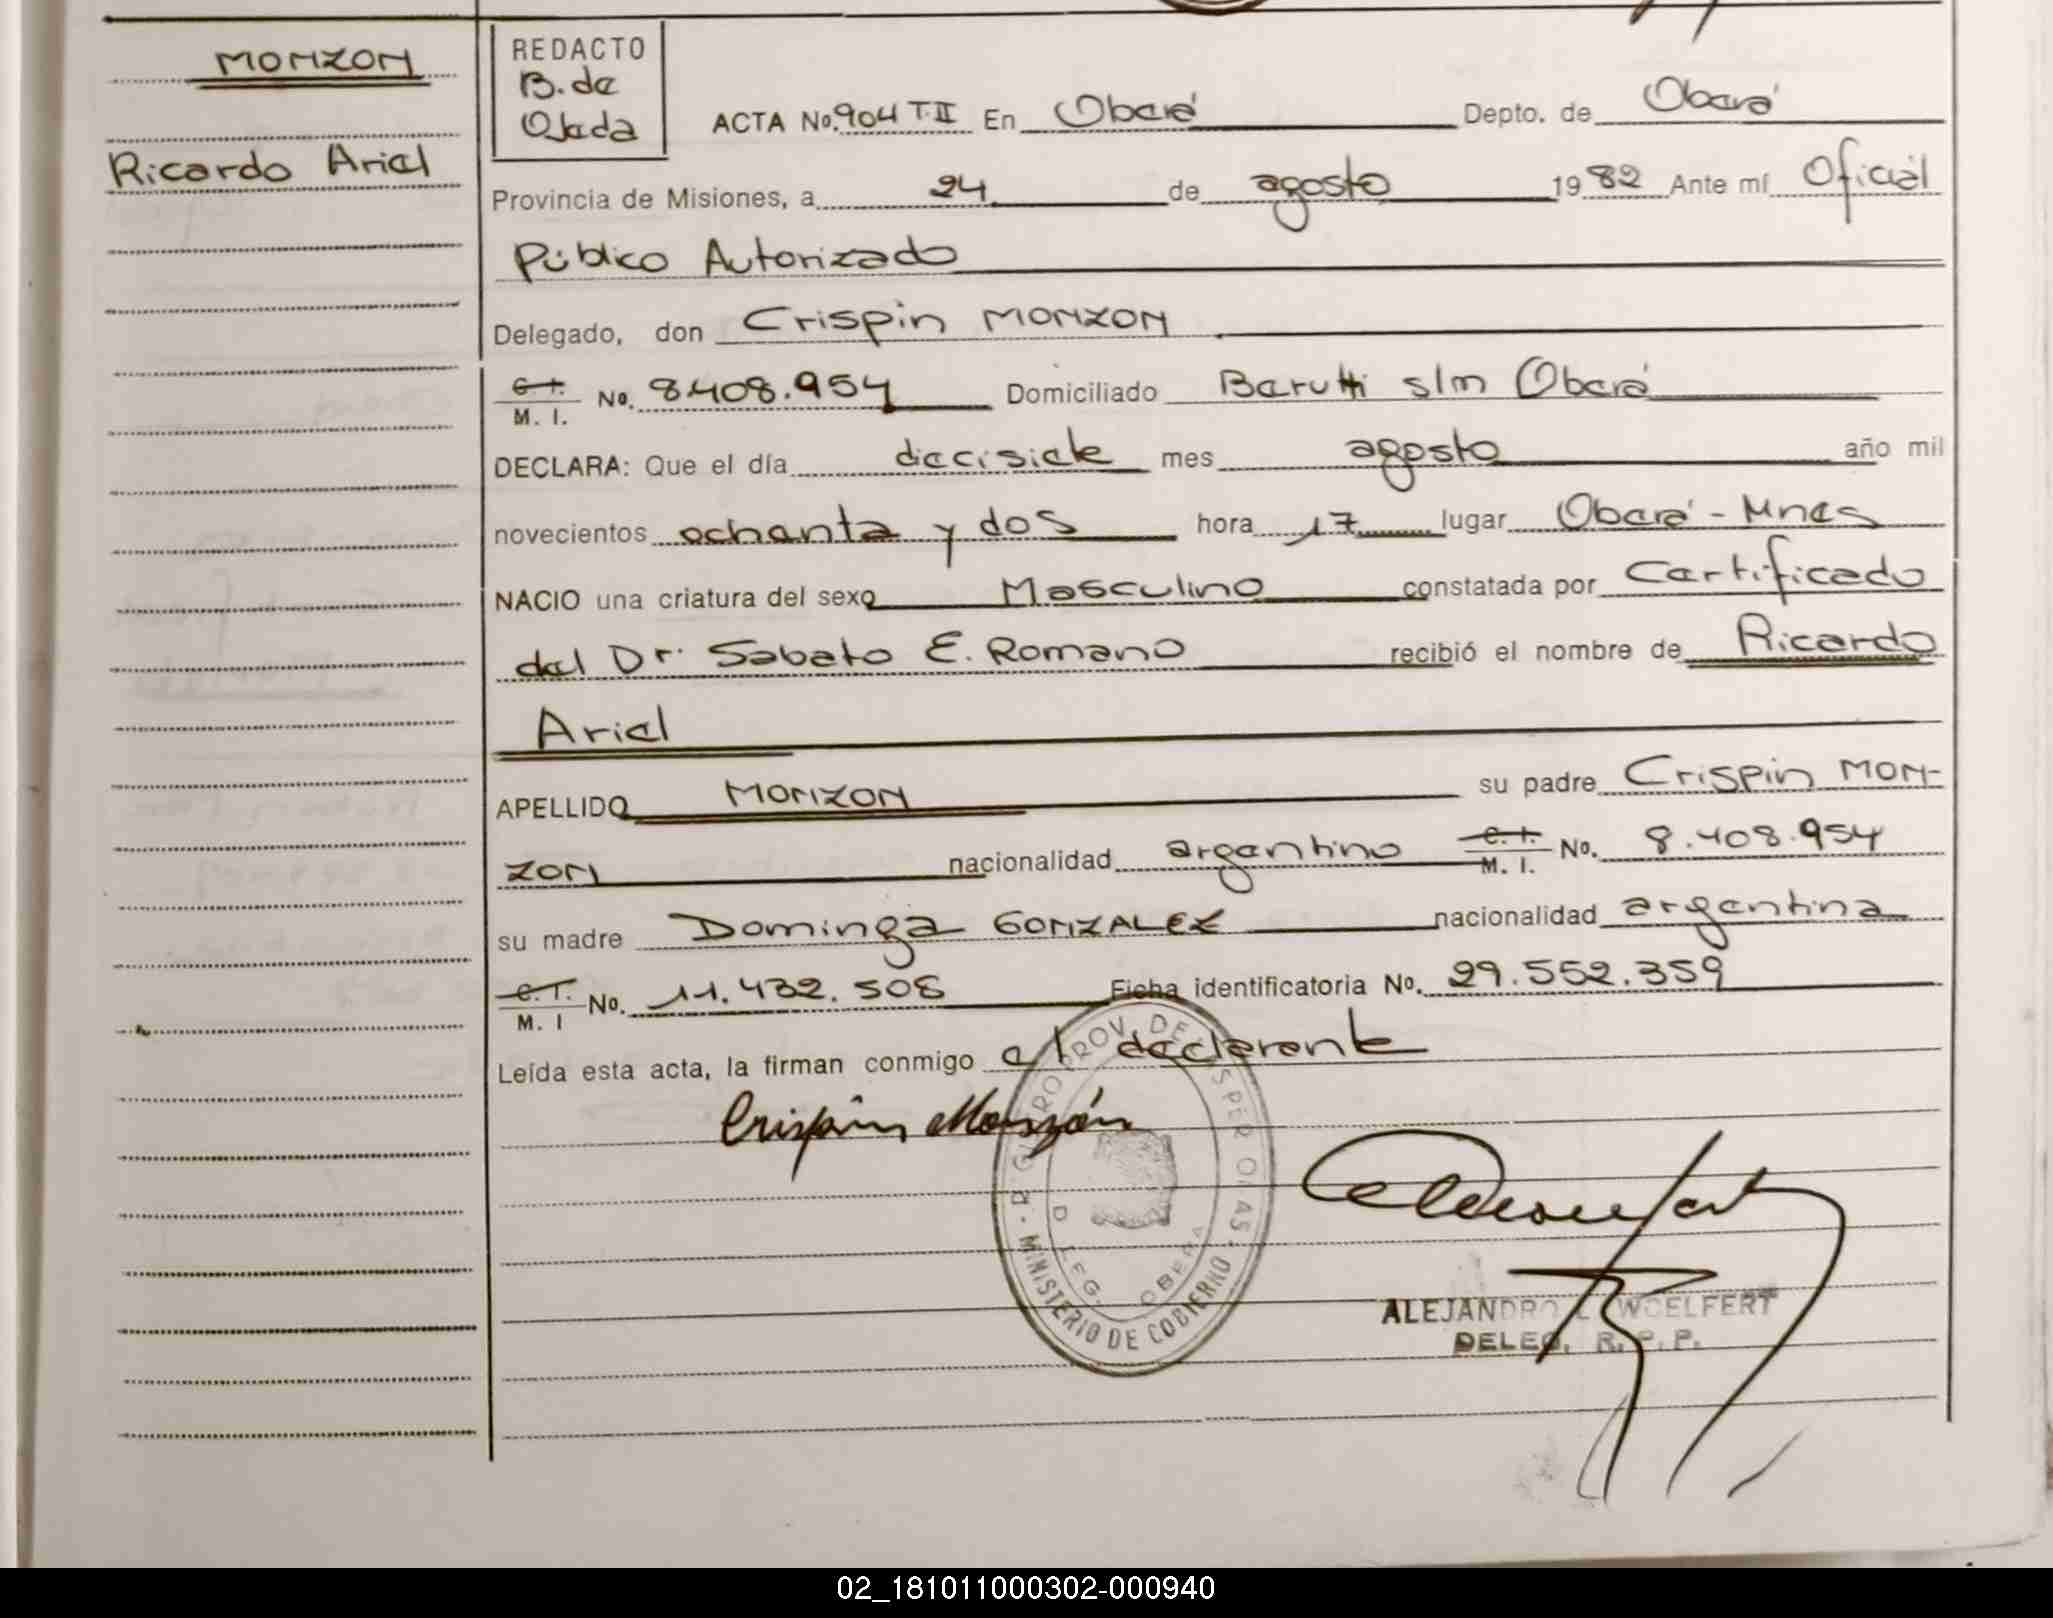 MONZON
Ricardo Ariel
REDACTO
B. de
Ojeda
ACTA No. 904 T.II En Oberá Depto. de Oberá
Provincia de Misiones, a 24 de agosto 1982 Ante mí Oficial
Público Autorizado
Delegado, don Crispin MONZON
C. I. M. I. No. 8.408.954 Domiciliado Barutti s/m Oberá
DECLARA: Que el día diecisiete mes agosto año mil
novecientos ochenta y dos hora 17 lugar Oberá - Mnes
NACIO una criatura del sexo Masculino constatada por Certificado
del Dr. Sabato E. Romano recibió el nombre de Ricardo
Ariel
APELLIDO MONZON su padre Crispin MON-
ZON nacionalidad argentino C. I. M. I. No. 8.408.954
su madre Dominga GONZALEZ nacionalidad argentina
C. I. M. I No. 11.432.508 Ficha identificatoria No. 29.552.359
Leída esta acta, la firman conmigo el declarante
Crispin Monzón
PROV. DE
MINISTERIO DE GOBIERNO
OBERA
ALEJANDRO L. WOELFERT
DELEG. R. P. P.
02_181011000302-000940